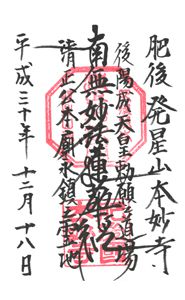 肥後発星山本妙寺
後陽成天皇勅願道場
南無妙法蓮華経
清正公本廟永鎮之霊地
平成三十年十二月十八日